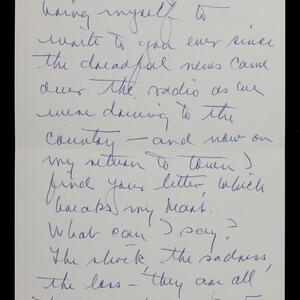 bring myself to
write to you ever since
the dreadful news came
over the radio as we
were driving to the
country — and now on
my return to town I
find your letter, which
breaks my heart.
What can I say?
The shock, the sadness,
the loss — they are all